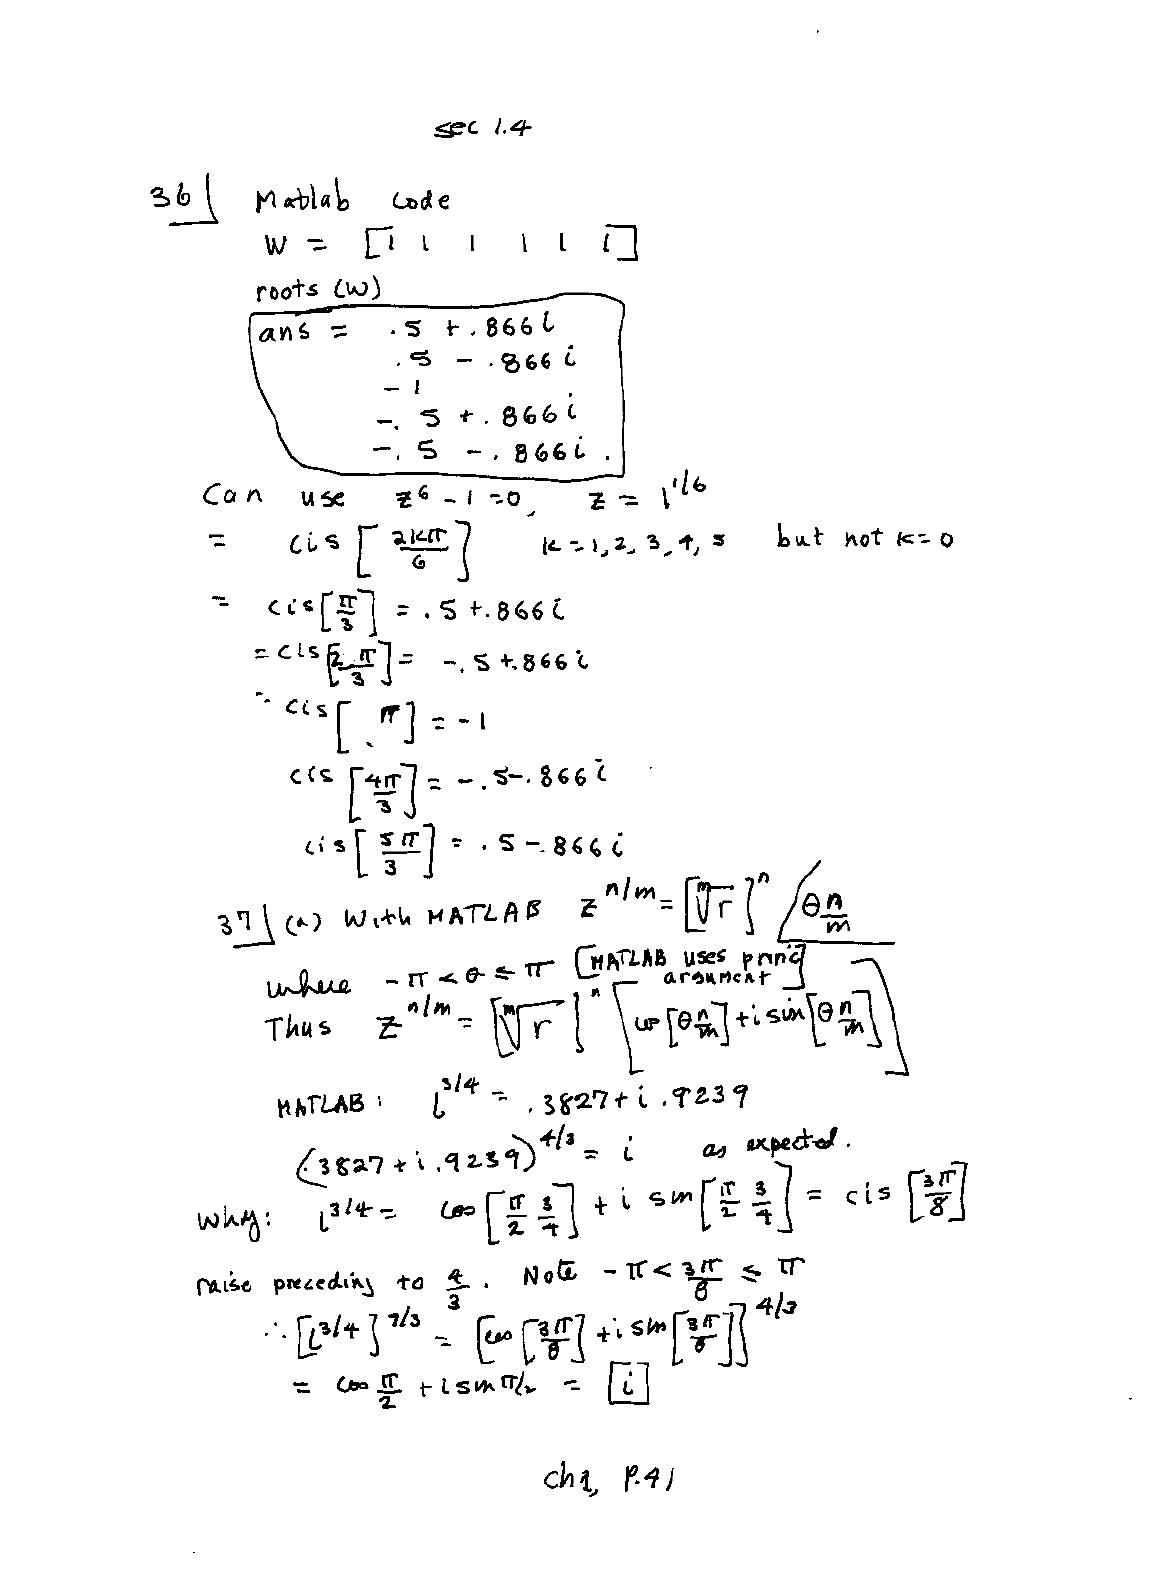 sec 1.4
36 Matlab code
W = [1 1 1 1 1 1]
roots (W)
ans = .5 + .866 i
.5 - .866 i
- 1
-.5 + .866 i
-.5 - .866 i .
Can use z^6 - 1 = 0, z = 1^{1/6}
= cis [2kπ/6] k = 1, 2, 3, 4, 5 but not k = 0
= cis[π/3] = .5 + .866 i
= cis[2π/3] = -.5 + .866 i
= cis[π] = -1
cis [4π/3] = -.5 - .866 i
cis [5π/3] = .5 - .866 i
37 (a) With MATLAB z^{n/m} = [ᵐ√r]^n ∠θ n/m
where -π < θ ≤ π [MATLAB uses princ argument]
Thus z^{n/m} = [ᵐ√r]^n [cos[θ n/m] + i sin[θ n/m]]
MATLAB: i^{3/4} = .3827 + i .9239
(.3827 + i .9239)^{4/3} = i as expected.
Why: i^{3/4} = cos[π/2 3/4] + i sin[π/2 3/4] = cis [3π/8]
raise preceding to 4/3. Note -π < 3π/8 ≤ π
∴ [i^{3/4}]^{4/3} = [cos [3π/8] + i sin [3π/8]]^{4/3}
= cos π/2 + i sin π/2 = i
ch 1, P. 41